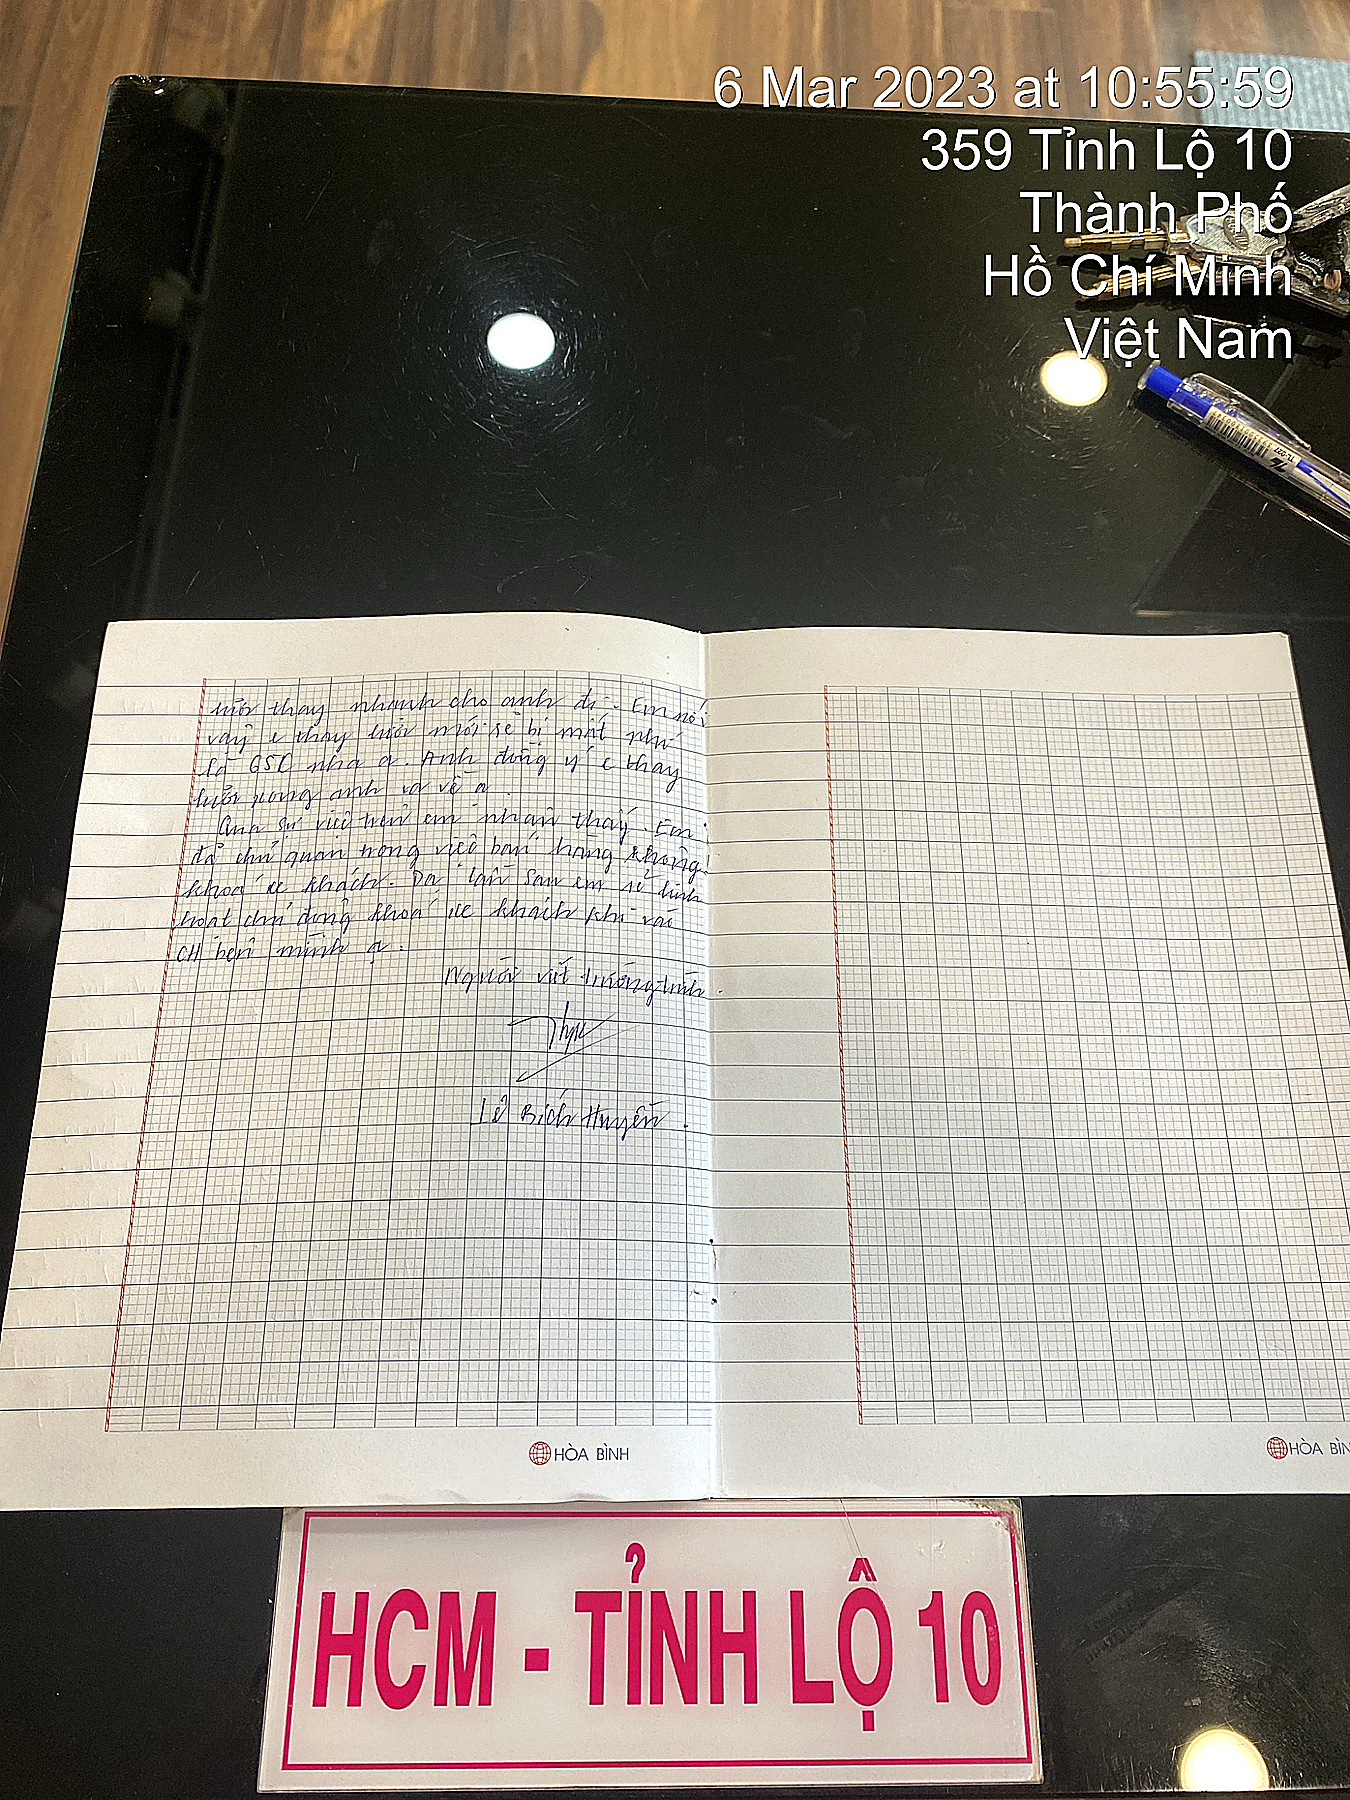 6 Mar 2023 at 10:55:59
359 Tỉnh Lộ 10
Thành Phố
Hồ Chí Minh
Việt Nam
TL-027
lưỡi thay nhanh cho anh đi. Em nói
vậy e thay lưỡi mới sẽ bị mất phí
là 65C nha ạ. Anh đồng ý e thay
lưỡi xong anh ra về ạ.
Qua sự việc trên em nhận thấy. Em
đã chủ quan trong việc bán hàng không
khoá xe khách. Dạ lần sau em sẽ linh
hoạt chủ động khoá xe khách khi vào
CH bên mình ạ.
Người viết tường trình
Lê Bích Huyền.
HÒA BÌNH
HÒA BÌN
HCM - TỈNH LỘ 10